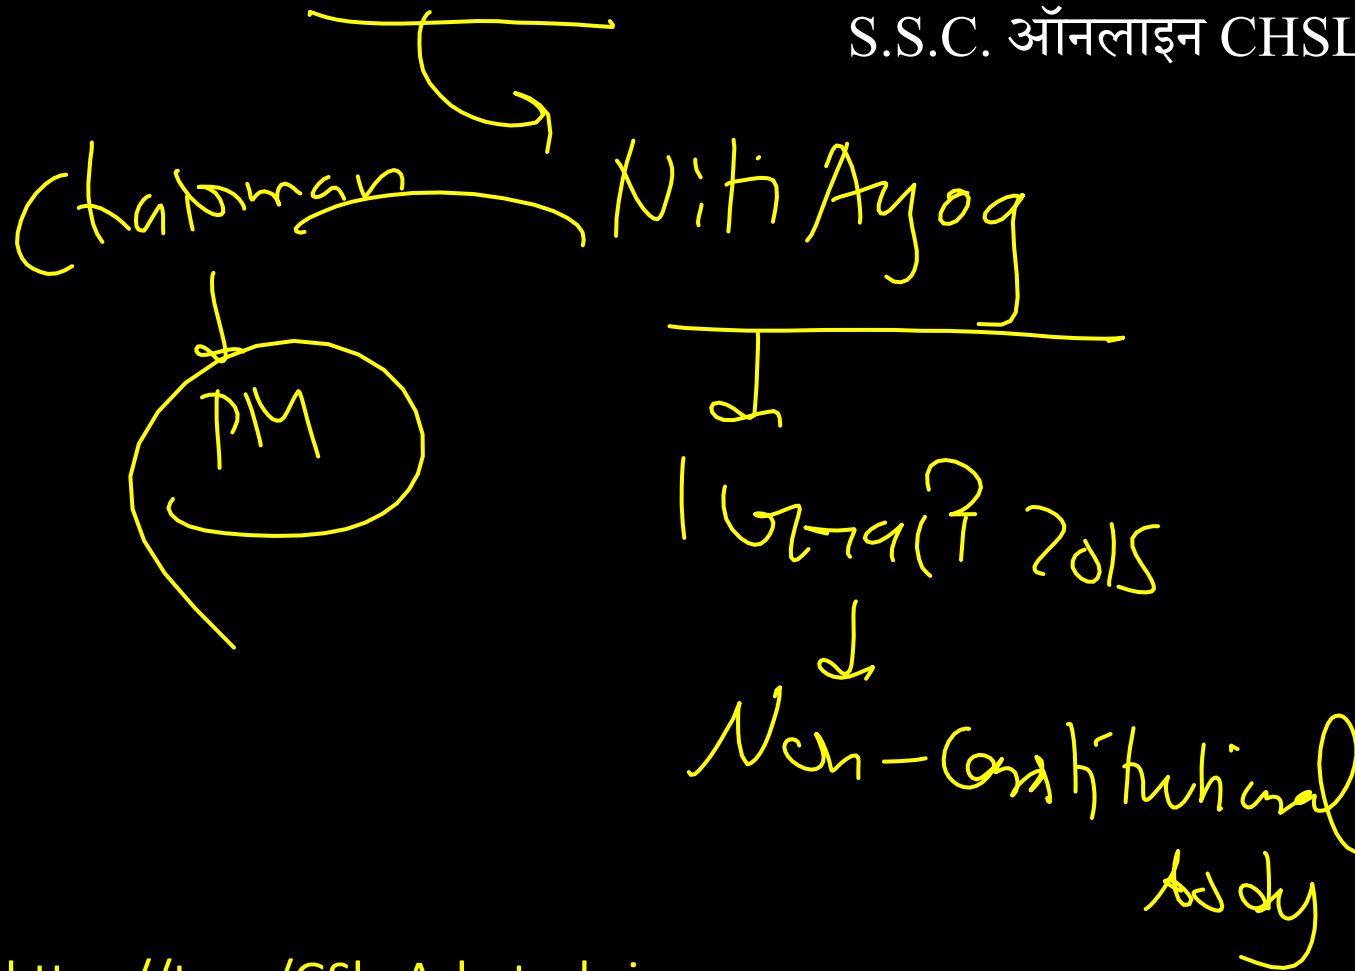 S.S.C. ऑनलाइन CHSL
Chairman
Niti Ayog
PM
1 2015
Non-Constitutional
body